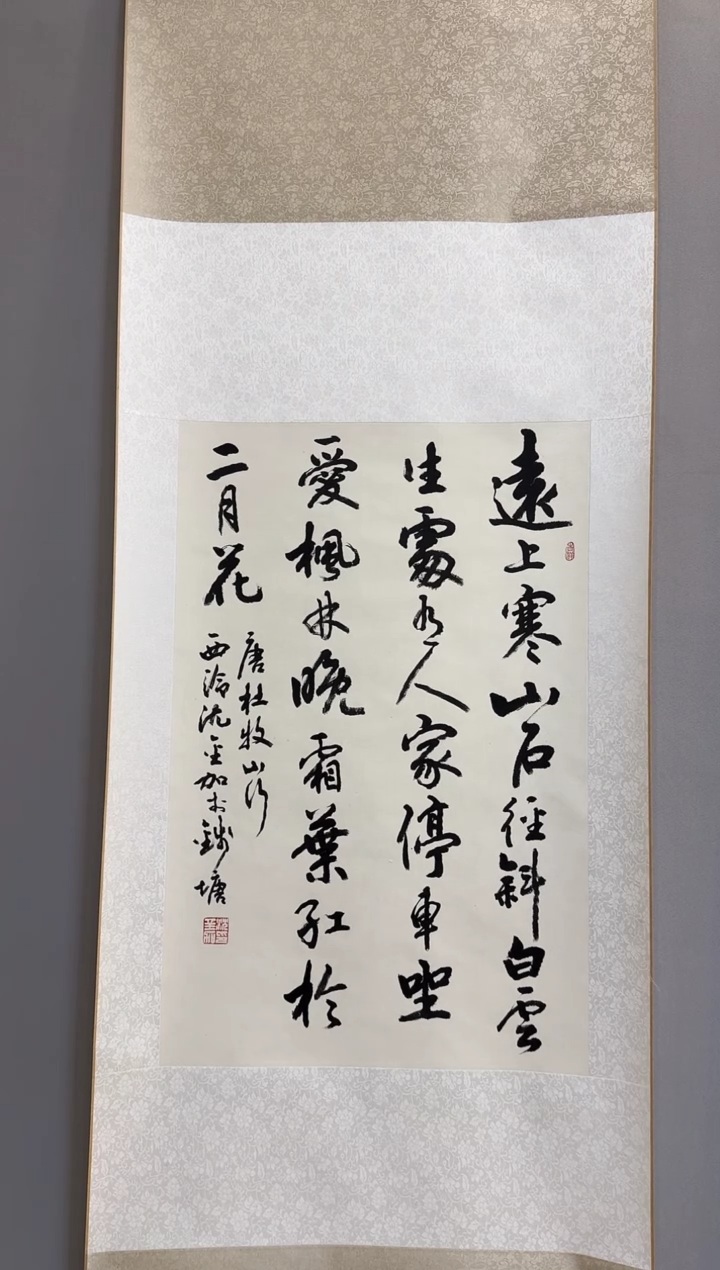 遠上寒山石徑斜白雲
生處有人家停車坐
愛楓林晚霜葉紅於
二月花
唐杜牧山行
西泠沈金加於錢塘